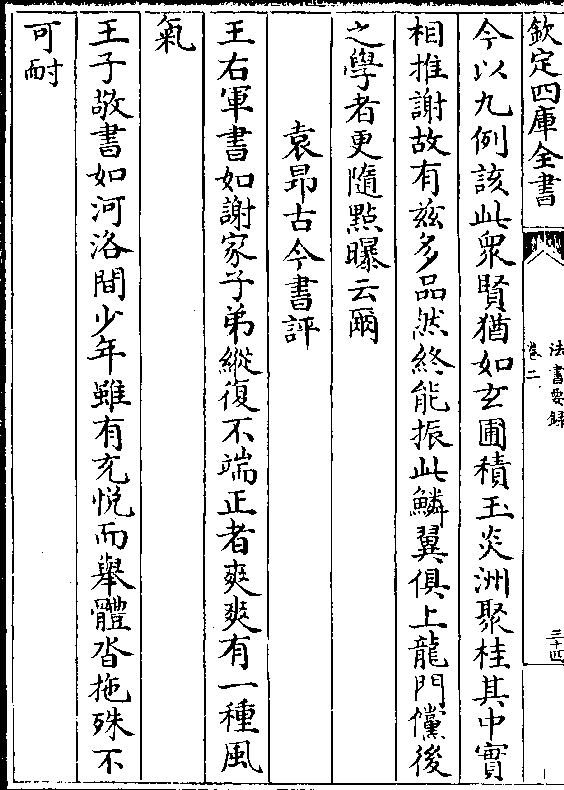 欽定四庫全書
法書要録
卷二
三十四
今以九例該此衆賢猶如玄圃積玉炎洲聚桂其中實
相推謝故有兹多品然終能振此鱗翼俱上龍門儻後
之學者更隨點曝云爾
袁昂古今書評
王右軍書如謝家子弟縱復不端正者爽爽有一種風
氣
王子敬書如河洛間少年雖有充悦而舉體沓拖殊不
可耐